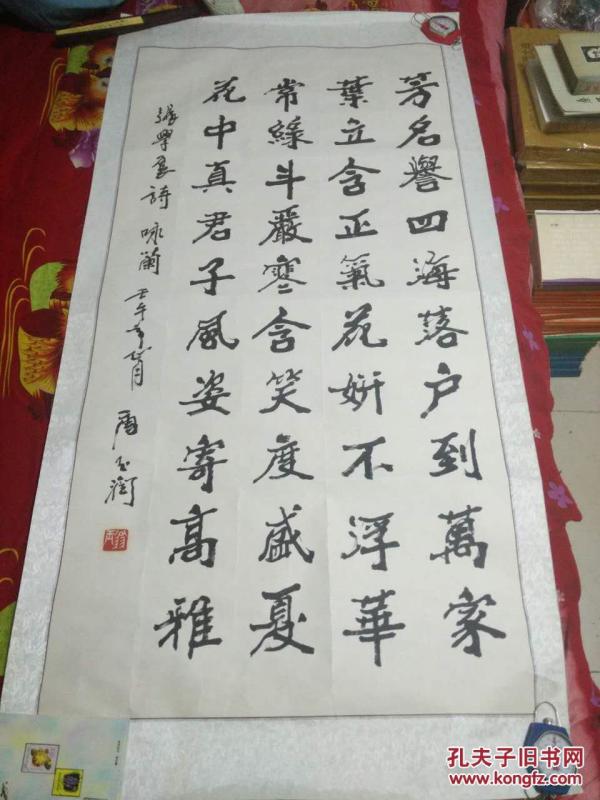 芳名譽四海落户到萬家
葉立含正氣花妍不浮華
常綠斗嚴寒含笑度盛夏
花中真君子風姿寄高雅
張學良詩 咏蘭 壬午年
孔夫子旧书网
www.kongfz.com